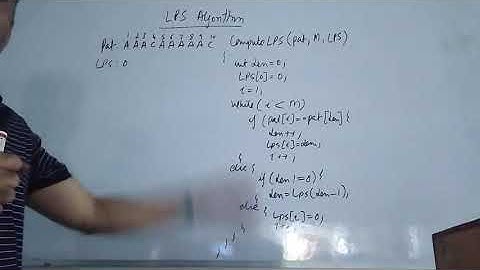 LPS Algorithm
1 2 3 4 5 6 7 8 9 10
Pat A A A C A A A A A C
LPS : 0
ComputeLPS (pat, M, LPS)
{
int len=0;
LPS[0]=0;
i=1;
while (i < M)
if (pat[i]==pat[len] {
len++;
Lps[i]=len;
i++;
}
else {
if (len != 0) {
len=Lps(len-1);
}
else { Lps[i]=0;
i++
}
} } }